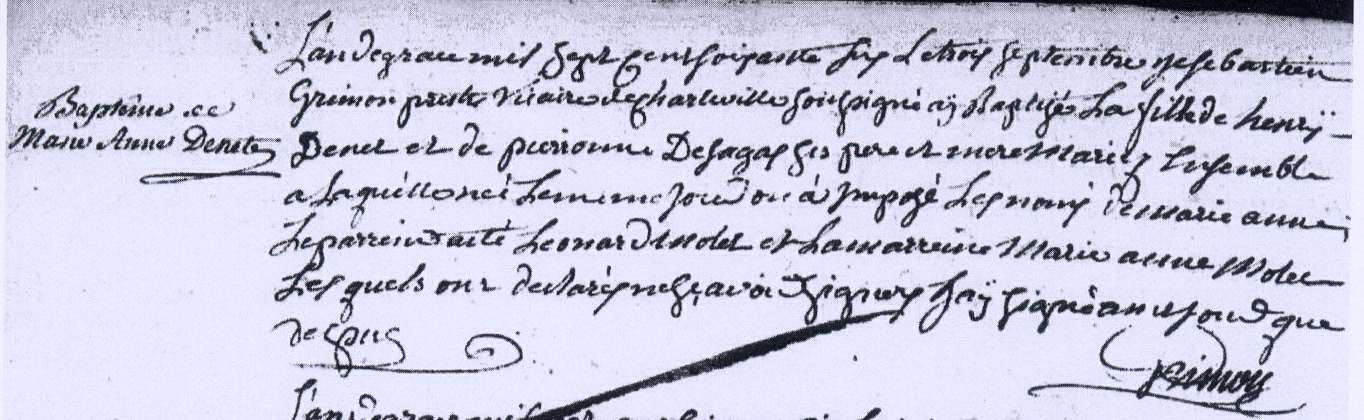 Baptême de
Marie Anne Denet
L'an de grace mil sept cent soixante six Le trois septembre je sebastien
Grimon prestre vicaire de charleville soussigné aÿ Baptizé La fille de henrÿ
Denet et de pieronne Desagas ses pere et mere Mariez Ensemble
a Laquelle neé Le meme jour on à Imposé Les noms de marie anne
Le parrein a eté Leonard molet et La marreine Marie anne Molet
Les quels ont declarés ne sçavoir signer j'aÿ signé an et jour que
dessus
Grimon